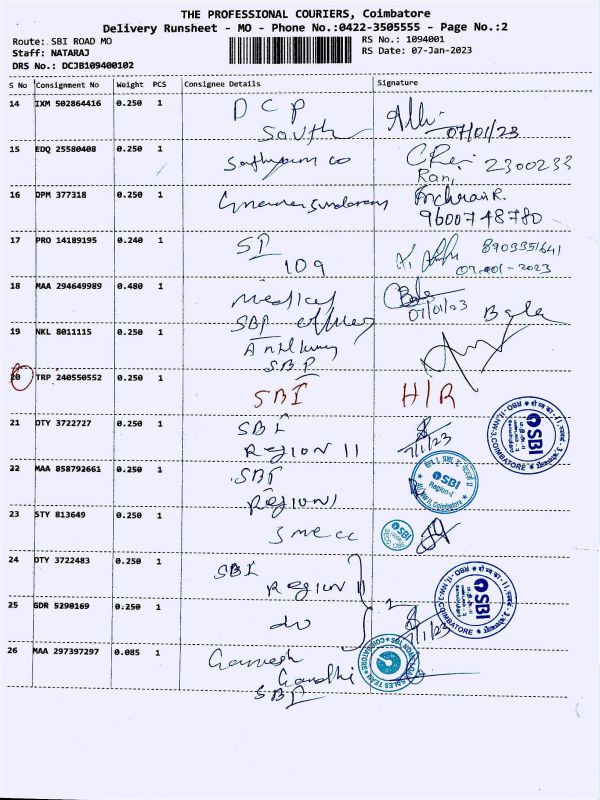 THE PROFESSIONAL COURIERS, Coimbatore
Delivery Runsheet - MO - Phone No.:0422-3505555 - Page No.:2
Route: SBI ROAD MO
RS No.: 1094001
Staff: NATARAJ
RS Date: 07-Jan-2023
DRS No.: DCJB109400102
S No Consignment No Weight PCS Consignee Details Signature
14 IXM 502864416 0.250 1 DCP
South 07/01/23
15 EDQ 25580408 0.250 1 2300233
Rani
16 DPM 377318 0.250 1
9600748780
17 PRO 14189195 0.240 1 SI 8903351641
109 07-001-2023
18 MAA 294649989 0.480 1 medical
SBI officer 07/01/23 Bala
19 NKL 8011115 0.250 1
SBI
20 TRP 240550552 0.250 1 SBI H/R
21 OTY 3722727 0.250 1 SBI
REGION II 7/1/23
SBI
22 MAA 858792661 0.250 1 SBI
REGION 1
SBI
Region-I
23 STY 813649 0.250 1 SMECC
24 OTY 3722483 0.250 1 SBI
REGION II
SBI
25 GDR 5290169 0.250 1 do
7/1/23
26 MAA 297397297 0.085 1 Ganesh
Gandhi
SBI